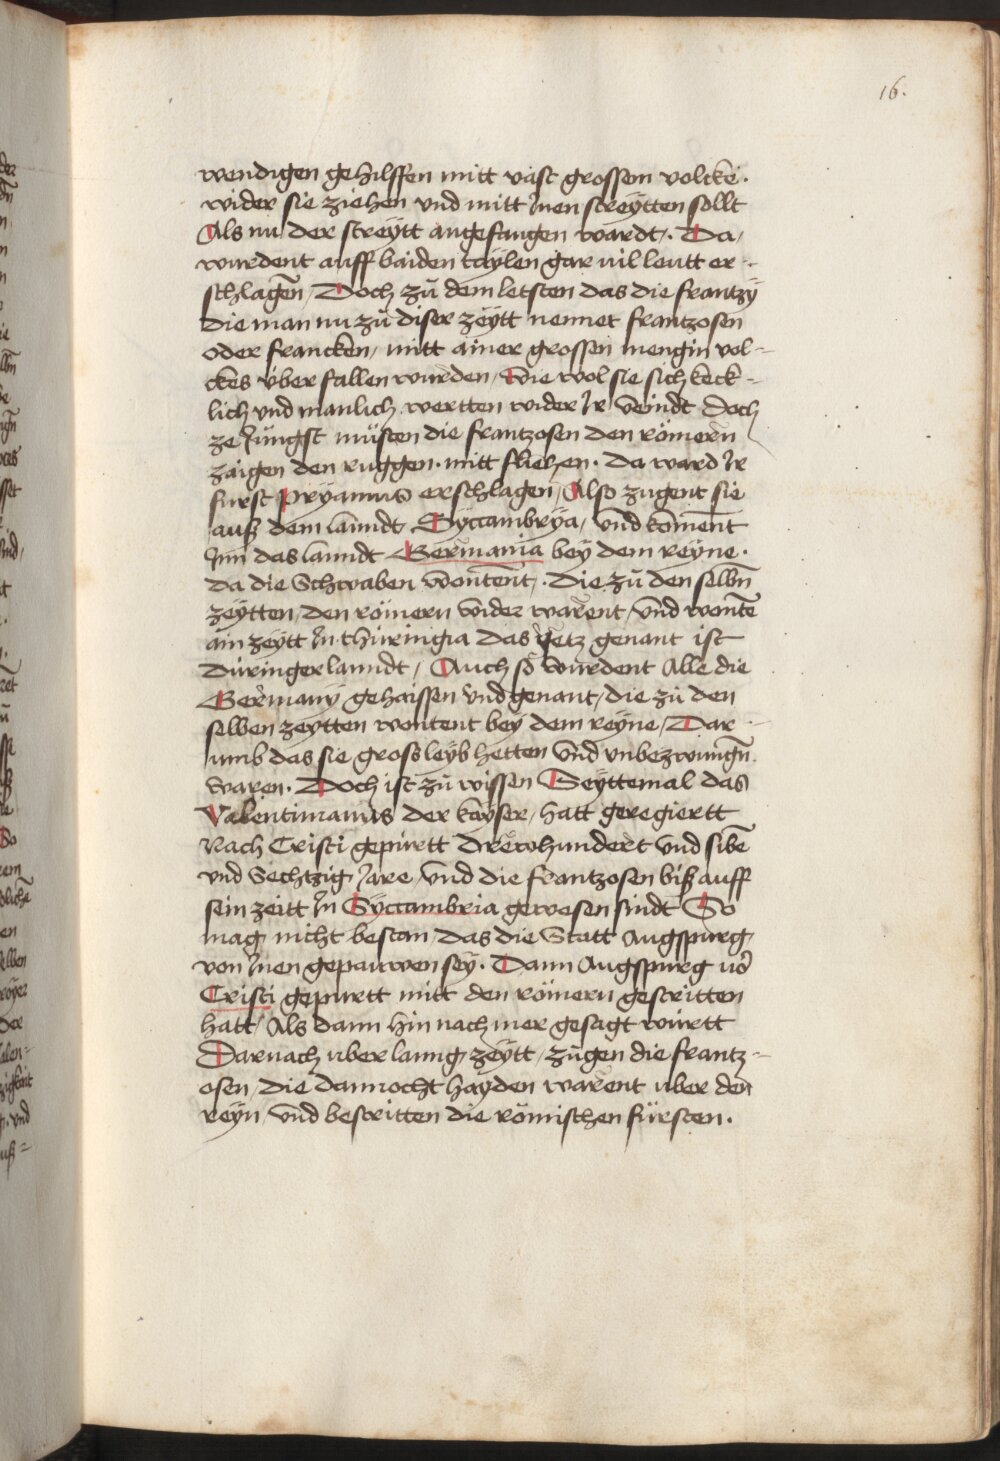 16.
wendigen gehilffen mitt vast grossem volcke ·
wider sie ziehen vnd mitt Jnen streÿtten sollt
Als nu der streÿtt angefangen wardt / · Da /
wurdent auff baiden taÿlen gar uil leutt er -
schlagen̄ / Doch zů dem letsten das die frantzÿ
die man nu zů diser zeÿtt nennet frantzosen
oder francken / mitt ainer grossen mengin vol -
ckes über fallen wurden / Wie wol sie sich keck -
lich vnd manlich wertten wider Jr veindt Doch
ze Jüngst müsten die frantzosen den römern
zaigen den ruggen · mitt fliehen · Da ward Jr
fürst Prÿamus erschlagen / Also zugent sie
auß dem lanndt Sÿccambrÿa / vnd koment
Jnn das lanndt Germania beÿ dem reÿne ·
da die Schwaben wontent / · Die zů den selbn̄
zeÿtten / den römern wider warent / vnd wonte
ain zeÿtt Jn thüringia das ÿetz genant ist
Düringer lanndt / Auch so wurdent Alle die
Germanÿ gehaissen vnd genant / die zů den
selben zeÿtten wontent beÿ dem reÿne / Dar -
umb das sie gross leÿb hetten vnd vnbezwungn̄
waren · Doch ist zů wissen Seÿttemal das
Valentinianus der kaÿser / hatt geregiertt
Nach Cristi gepürtt drewhundert vnd sibē
vnd Sechtzig Jare / vnd die frantzosen biß auff
sein zeitt Jn Sÿccambria gewesen sindt So
mag nicht bestan / das die Statt Augspurg
von Jnen gepauwen seÿ · Dann Augspurg uor
Cristi gepurtt mitt den römern gestritten
hatt / Als dann hin nach mer gesagt württ
Darnach uber lanng zeÿtt / zugen die frantz -
osen / die dannocht haÿden warent uber den
reÿn / vnd bestritten die römischen fürsten ·